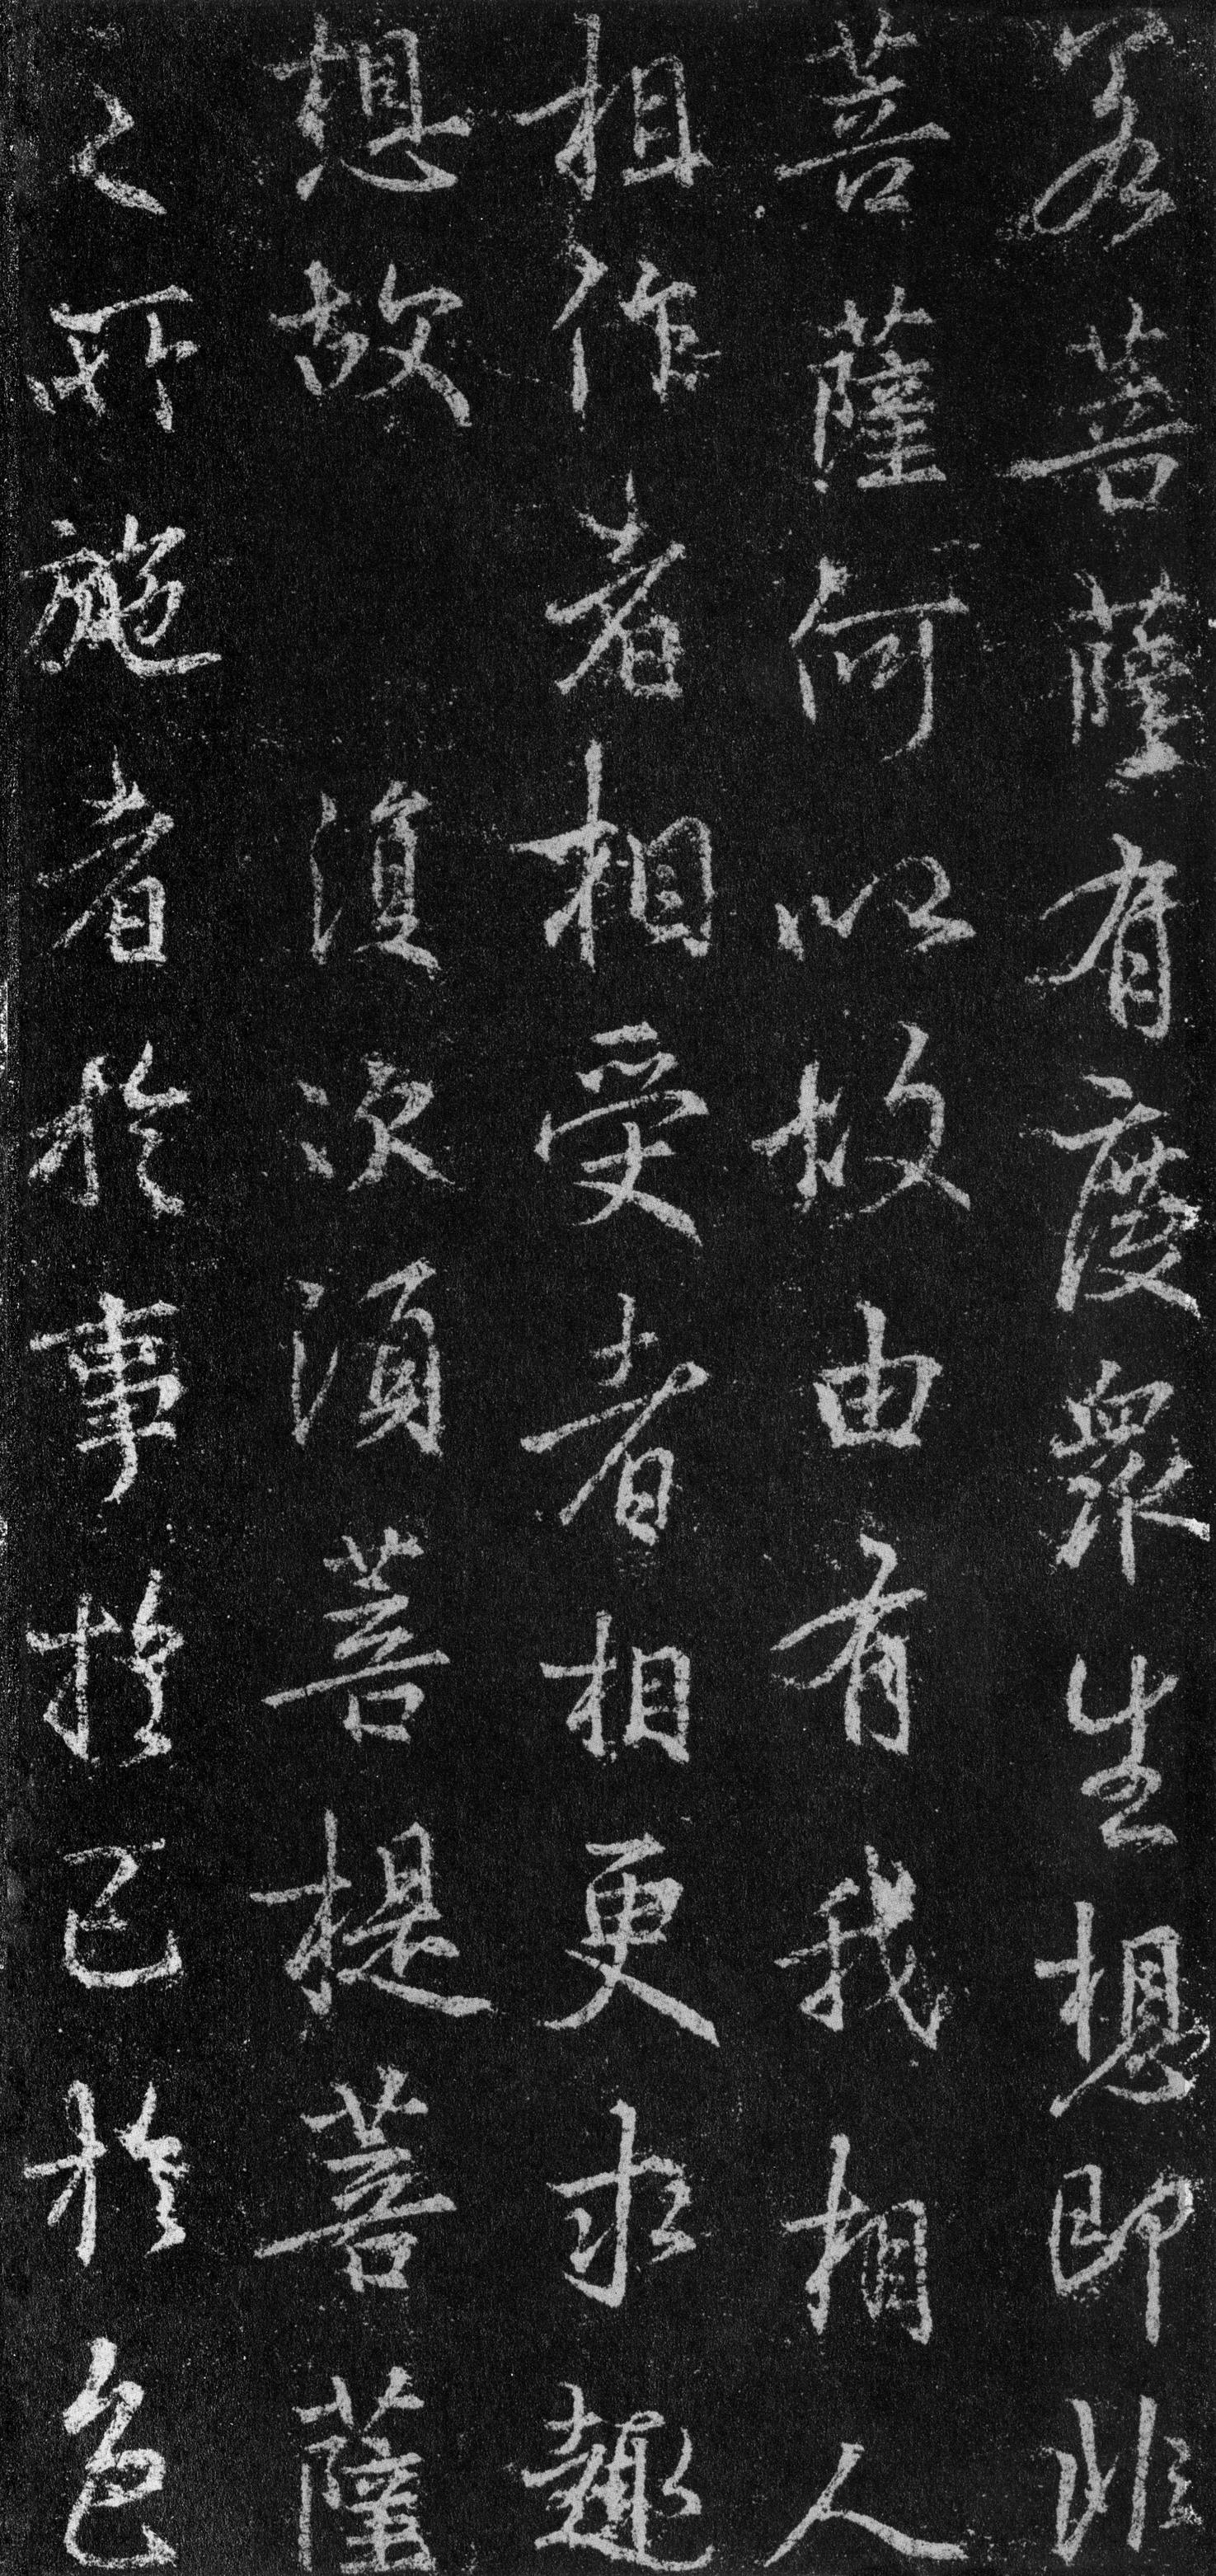 若菩薩有度衆生想即非
菩薩何以故由有我相人
相作者相受者相更求趣
想故 復次須菩提菩薩
之所施者於事於己於色